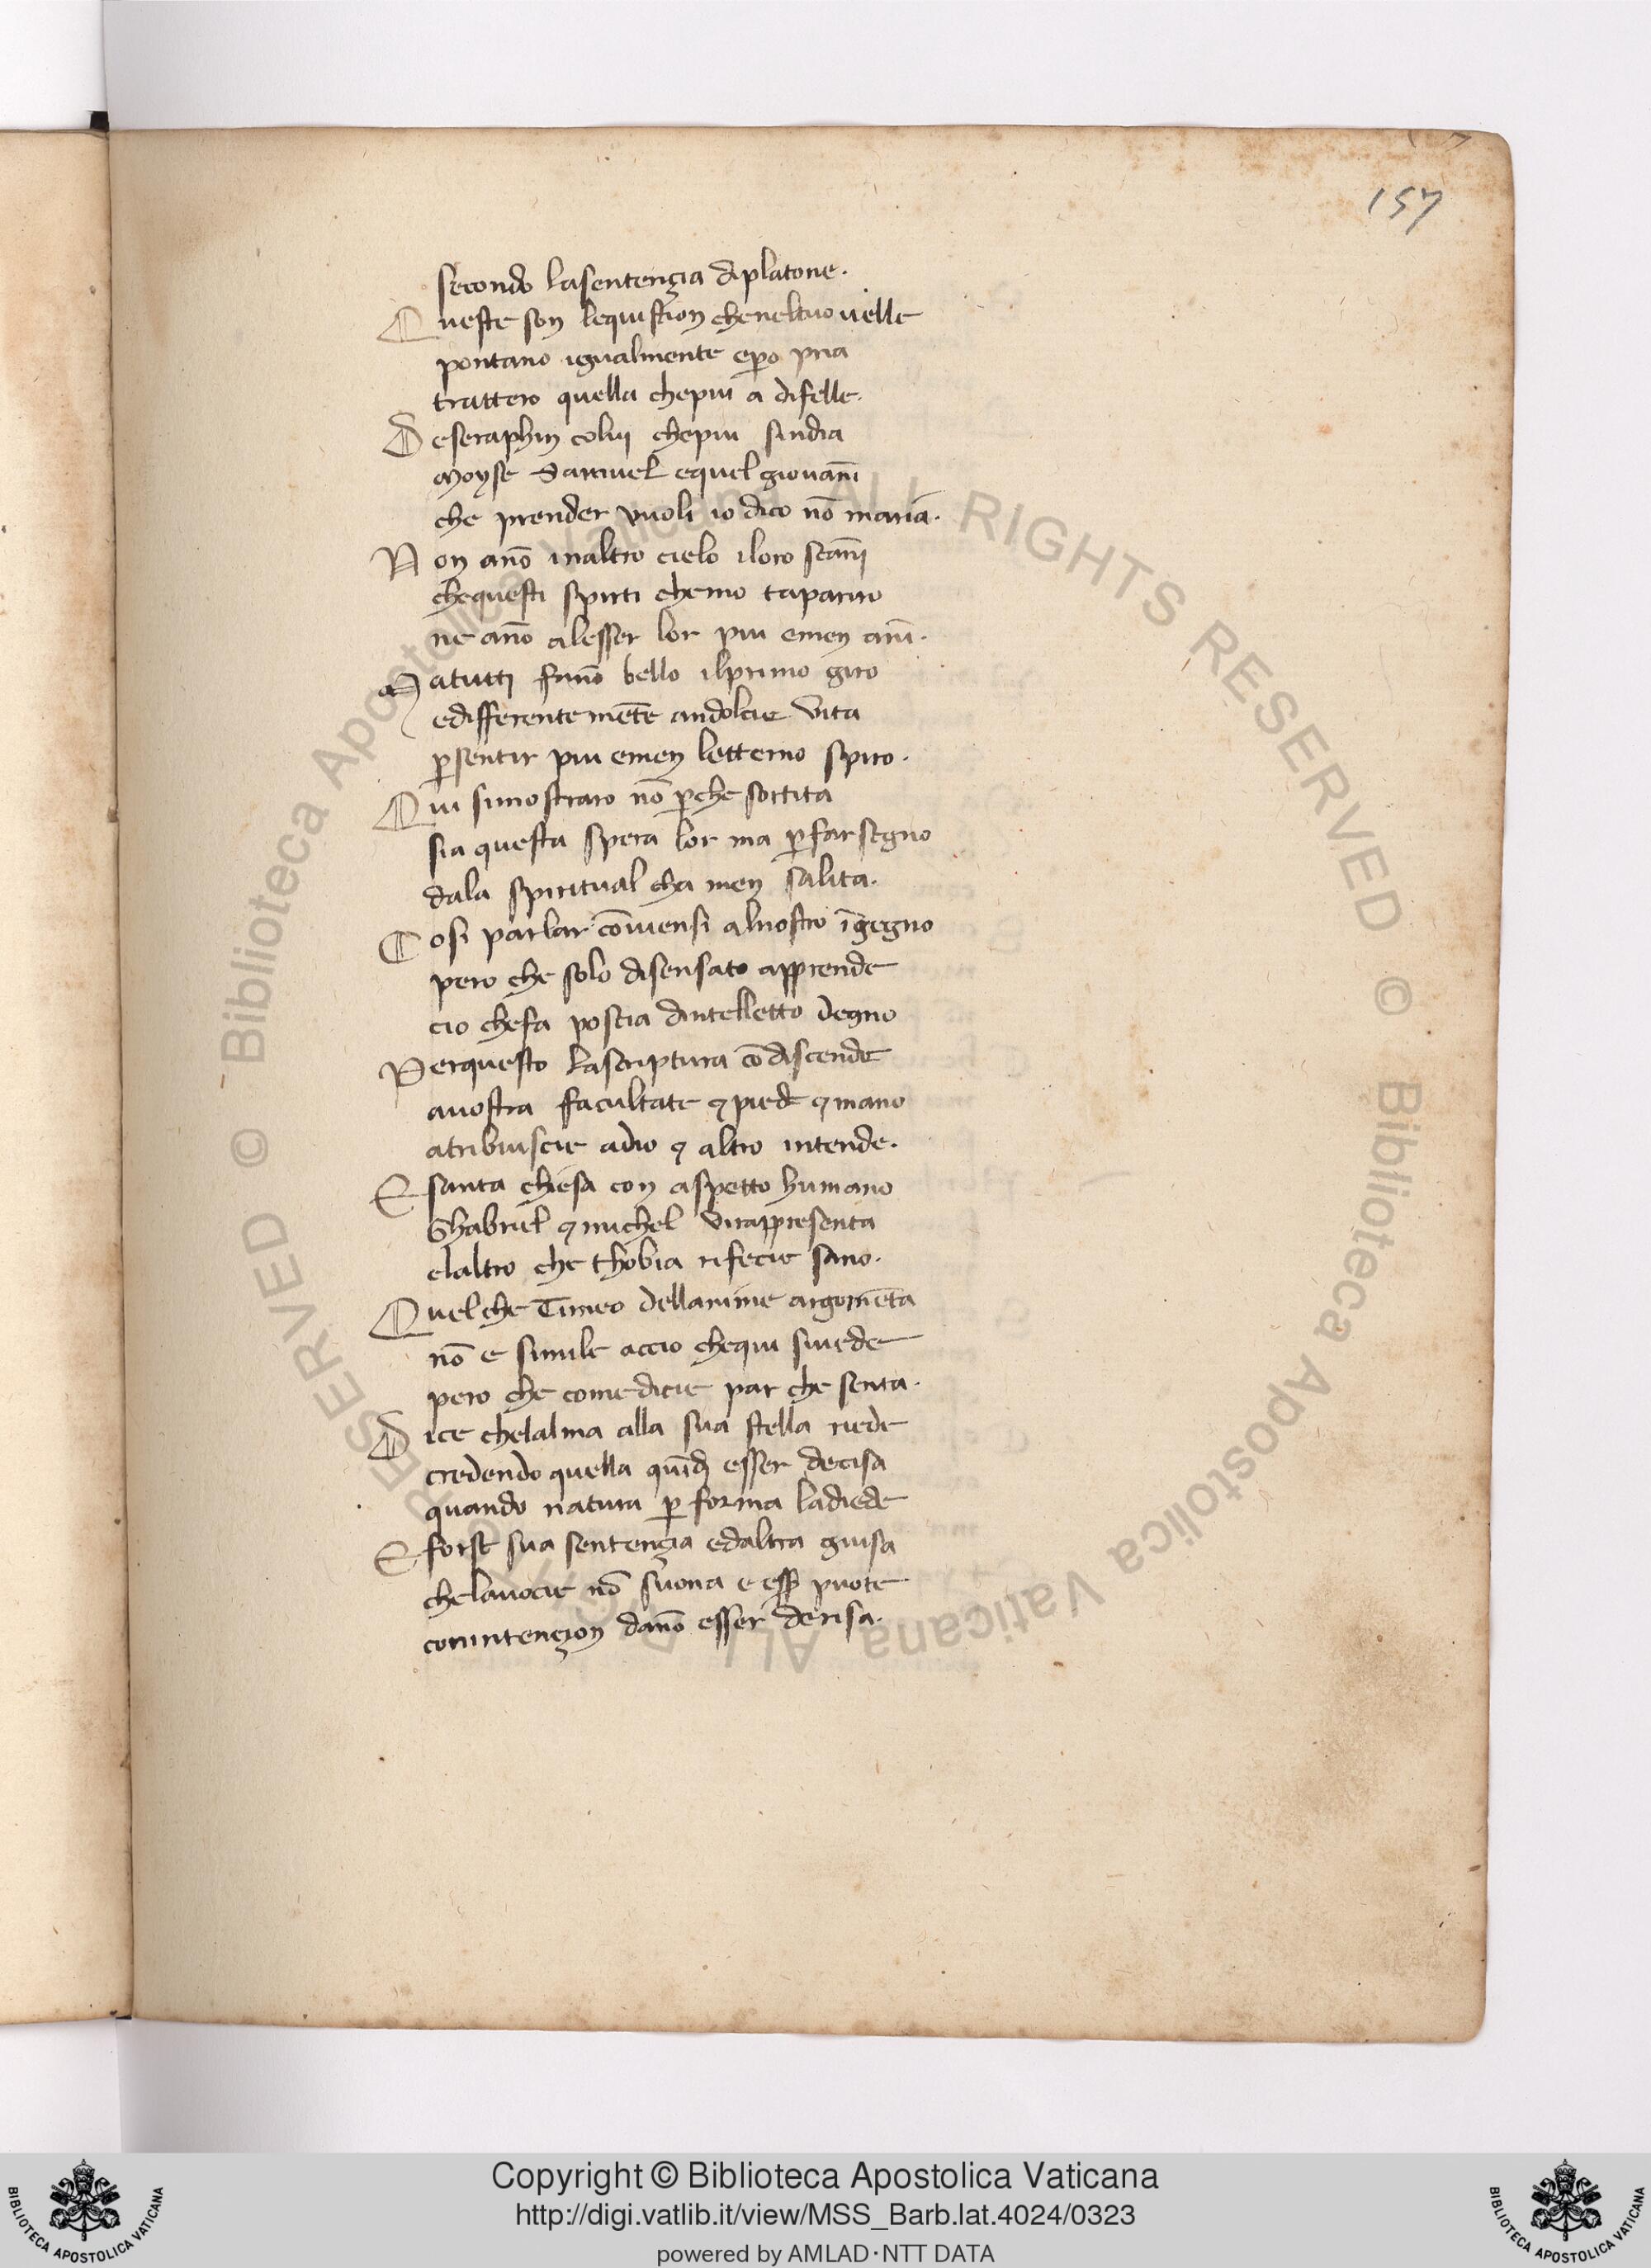 157
secondo lasentençia diplatone.
Queste son lequistion cheneltuo uelle
pontano igualmente ep̱o pria
trattero quella chepiu a difelle.
Deseraphin colui chepiu sindia
Moyse Samuel equel giouan̄i
che prender vuoli io dico nō maria.
Non an̄o inaltro cielo iloro scan̄i
chequesti spirti chemo taparuo
ne an̄o alesser lor piu emen an̄i.
Matutti fan̄o bello ilprimo giro
edifferentemēte andolcie vita
p̱sentir piu emen letterno spiro.
Qui simostraro nō p̱che sortita
sia questa spera lor ma p̱far segno
dala spiritual cha men salita.
Cosi parlar cōuiensi alnostro īgegno
pero che solo disensato apprende
cio chefa poscia dintelletto degno
Perquesto lascriptura cōdiscende
auostra facultate ⁊ piede ⁊ mano
atribuiscie adio ⁊ altro intende.
E santa chiesa con aspetto humano
Ghabriel ⁊ michel virappresenta
elaltro che thobia rifecie sano.
Quelche Timeo dellanime argomēta
nō e simile accio chequi siuede
pero che comedicie par che senta.
Dice chelalma alla sua stella riede
credendo quella quīdi esser decisa
quando natura p̱ forma ladiede
E forse sua sentençia edaltra guisa
chelauocie nō suona e ess̱ puote
conintençion dan̄o esser derisa.
Copyright © Biblioteca Apostolica Vaticana
http://digi.vatlib.it/view/MSS_Barb.lat.4024/0323
powered by AMLAD·NTT DATA
BIBLIOTECA APOSTOLICA VATICANA
BIBLIOTECA APOSTOLICA VATICANA
© Biblioteca Apostolica Vaticana ALL RIGHTS RESERVED © Biblioteca Apostolica Vaticana ALL RIGHTS RESERVED